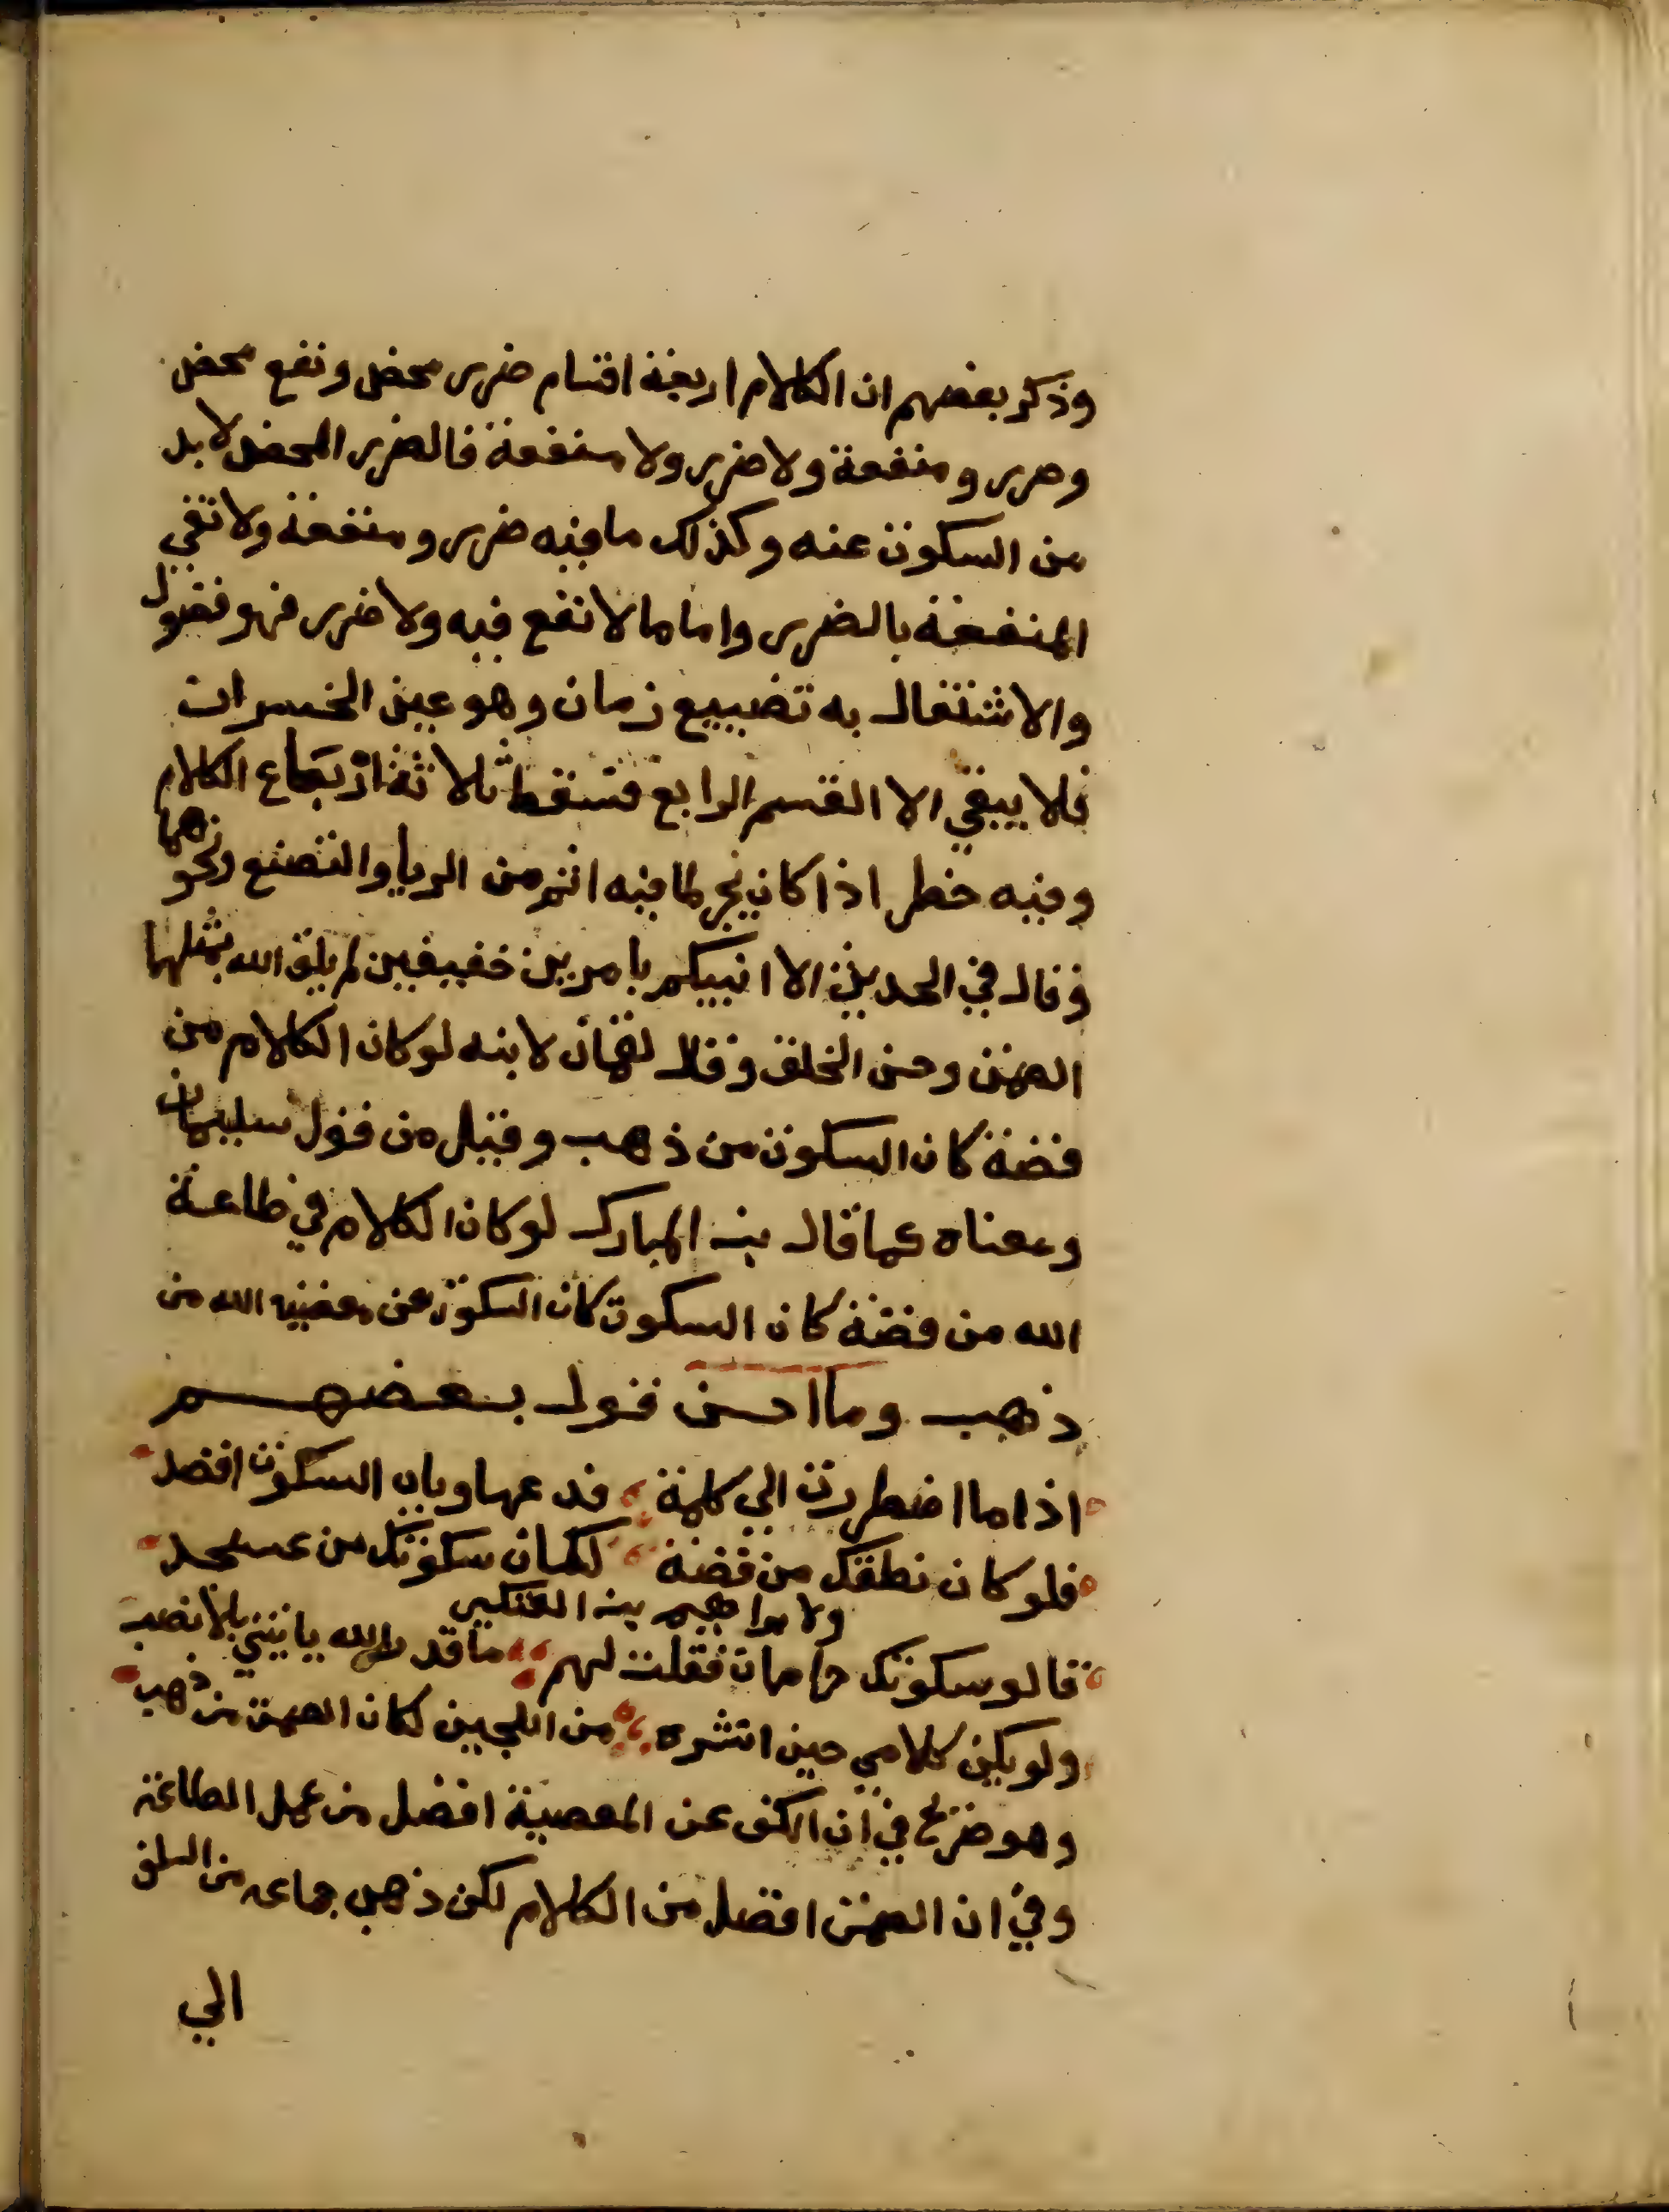 وذكر بعضهم ان الكلام اربعة اقسام ضرر محض ونفع محض
وضرر ومنفعة ولا ضرر ولا منفعة فالضرر المحض لا بد
من السكوت عنه وكذلك ما فيه ضرر ومنفعة ولا تفي
المنفعة بالضرر واما ما لا نفع فيه ولا ضرر فهو فضول
والاشتغال به تضييع زمان وهو عين الخسران
فلا يبقي الا القسم الرابع فسقط ثلاثة ارباع الكلام
وفيه خطر اذا كان يجر لما فيه اثم من الريا والتصنع ونحوهما
وقال في الحديث الا انبيكم بامرين خفيفين لم يلق الله بمثلهما
الصمت وحسن الخلق وقال لقمان لابنه لو كان الكلام من
فضة كان السكوت من ذهب وقيل من قول سليمان
ومعناه كما قال بن المبارك لو كان الكلام في طاعة
الله من فضة كان السكوت كان السكوت عن معصية الله من
ذهب وما احسن قول بعضهم
اذا ما اضطررت الي كلمة فدعها وباب السكوت اقصد
فلو كان نطقك من فضة لكان سكوتك من عسجد
ولابراهيم بن
قالو سكوتك حرمان فقلت لهم ما قدر الله ياتيني بلا نصب
ولو يكن كلامي حين انشره من اللجين لكان الصمت من ذهب
وهو صريح في ان الكف عن المعصية افضل من عمل الطاعة
وفي ان الصمت افضل من الكلام لكن ذهب جماعه من السلف
الي